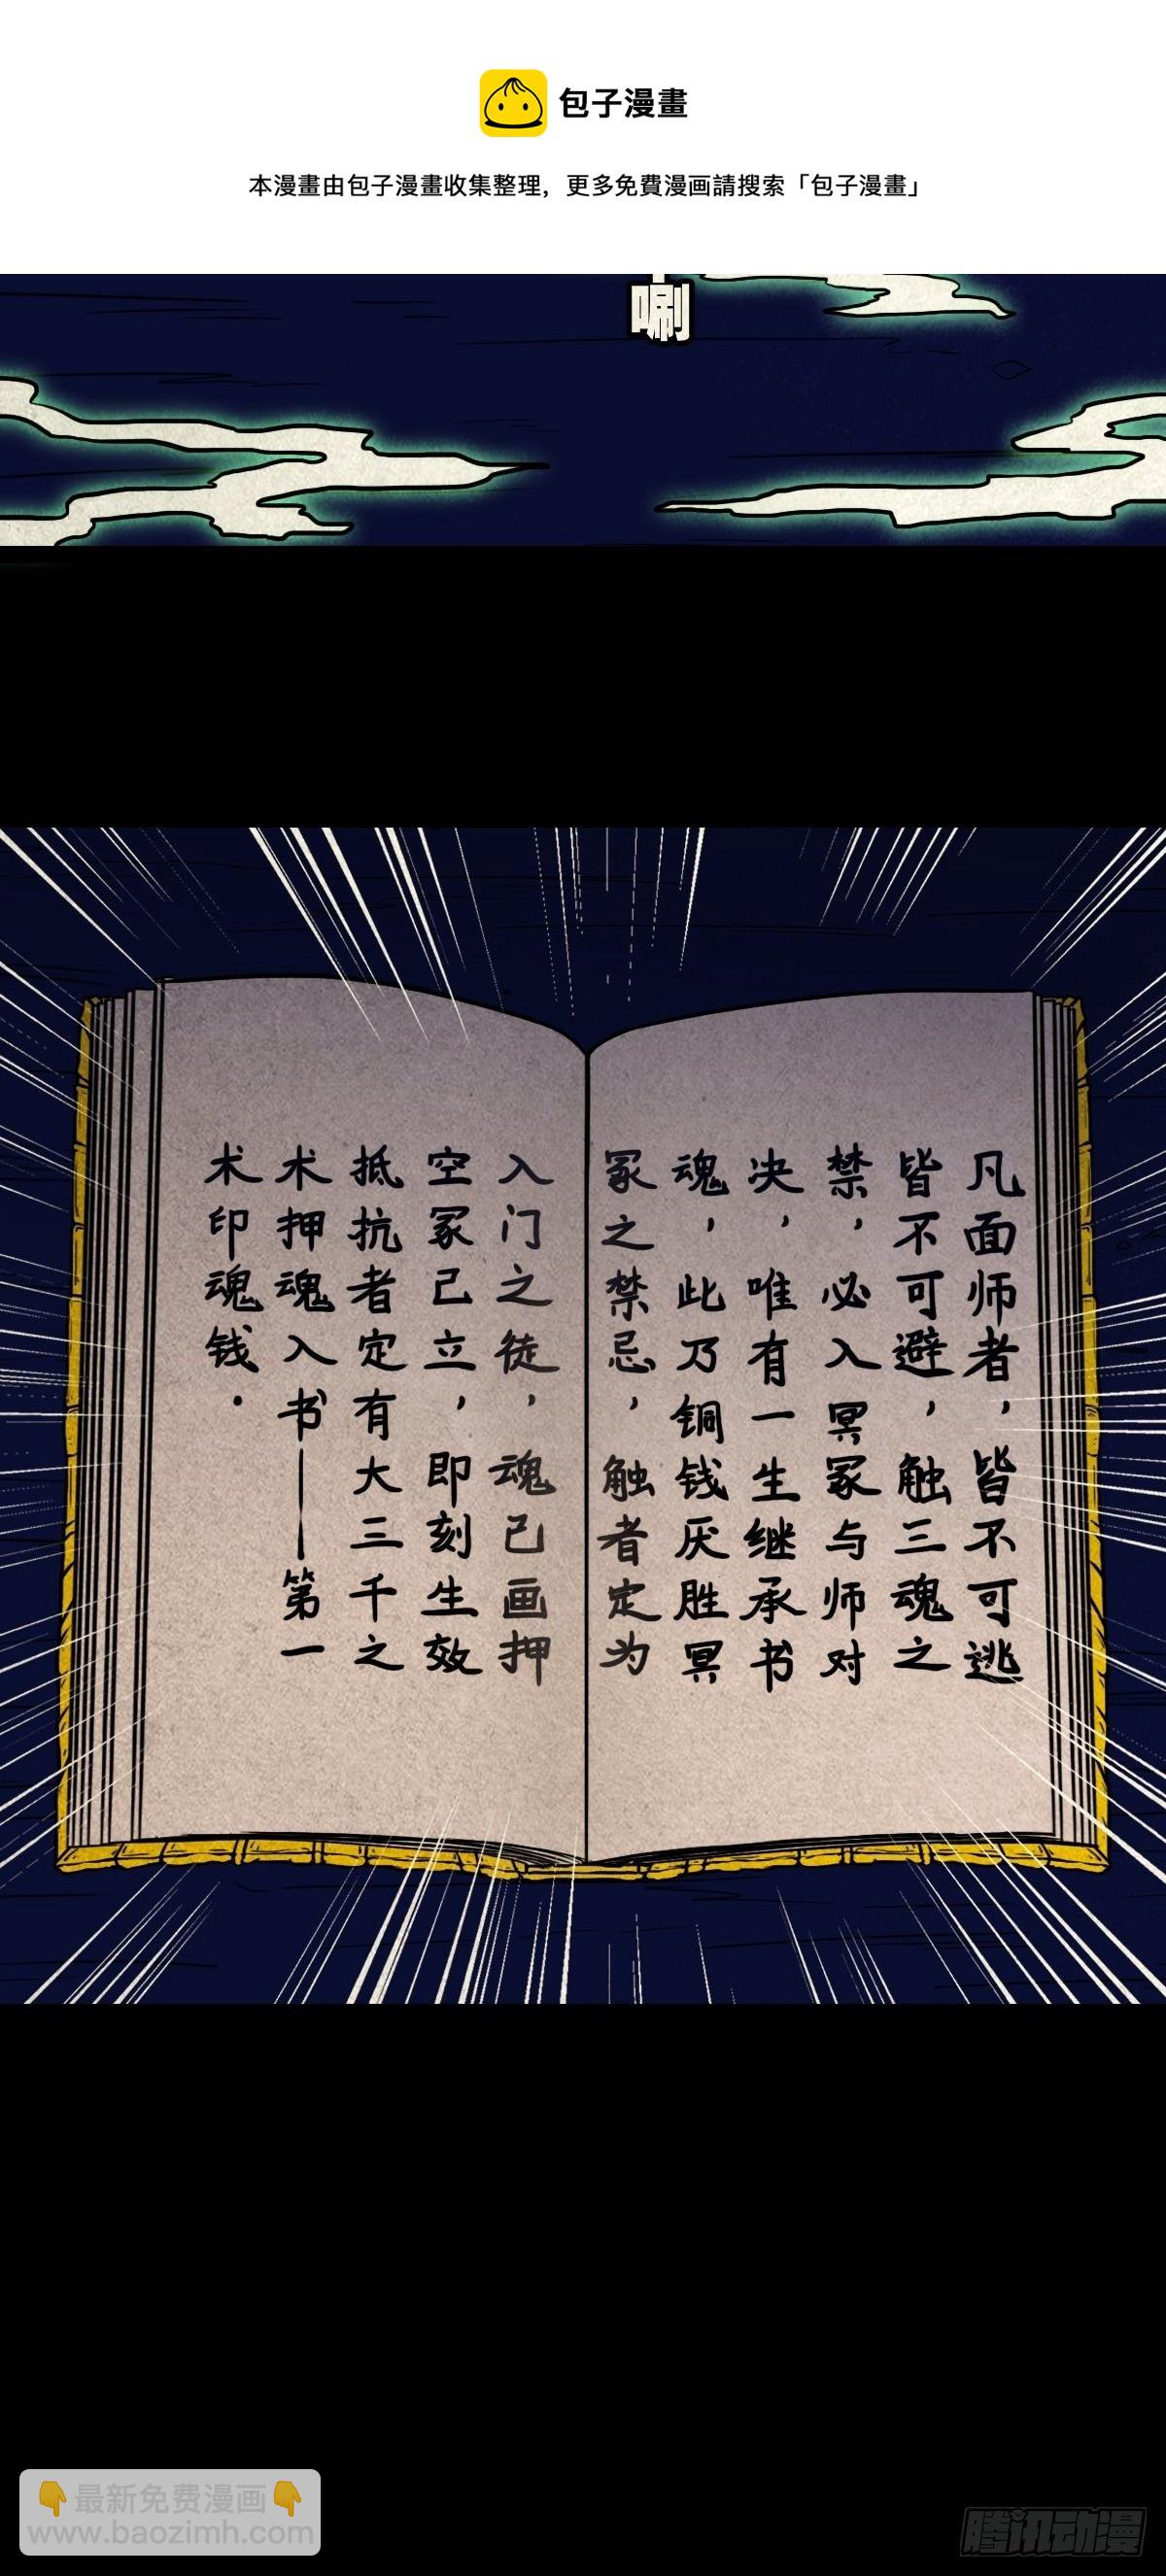 包子漫畫
本漫畫由包子漫畫收集整理，更多免費漫画請搜索「包子漫畫」
唰
凡面师者，皆不可逃
皆不可避，触三魂之
禁，必入冥冢与师对
决，唯有一生继承书
魂，此乃铜钱厌胜冥
冢之禁忌，触者定为
入门之徒，魂己画押
空冢己立，即刻生效
抵抗者定有大三千之
术押魂入书——第一
术印魂钱.
👇最新免费漫画👇
www.baozimh.com
腾讯动漫